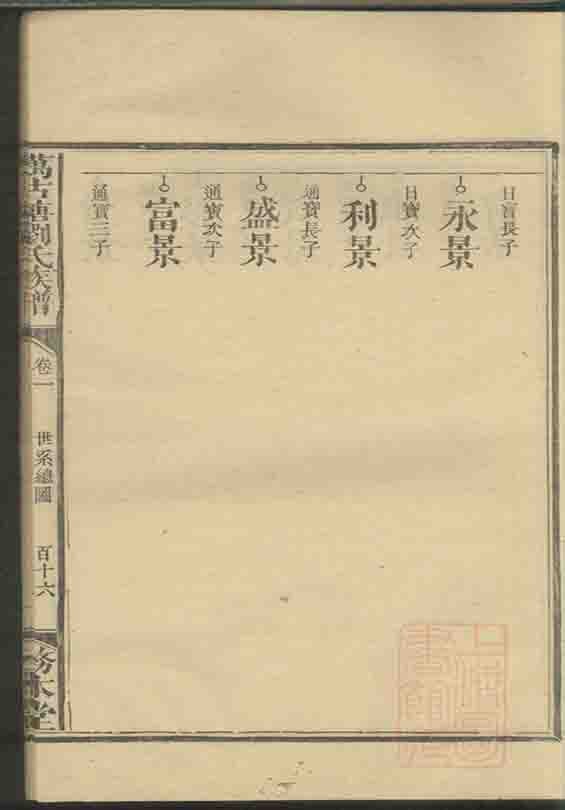 永景
日寶次子
利景
通寶長子
盛景
通寶次子
富景
通寶三子
劉氏族譜
卷一
世系總圖
百十六
務本堂
上海圖
書館藏